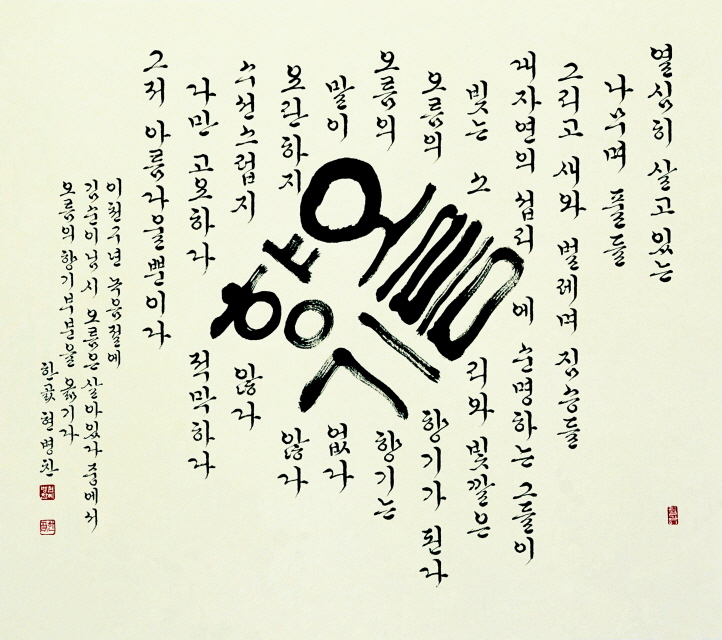 열심히 살고 있는
나무며 풀들
그리고 새와 벌레며 짐승들
대자연의 섭리에 순명하는 그들이
빚는 소리와 빛깔은
오름의 향기가 된다
오름의 향기는
말이 없다
요란하지 않다
수선스럽지 않다
다만 고요하다 적막하다
그저 아름다울뿐이다
오름
향기
이천구년 녹음절에
김순이님 시 오름은 살아있다 중에서
오름의 향기 부분을 옮기다
한곬 현병찬